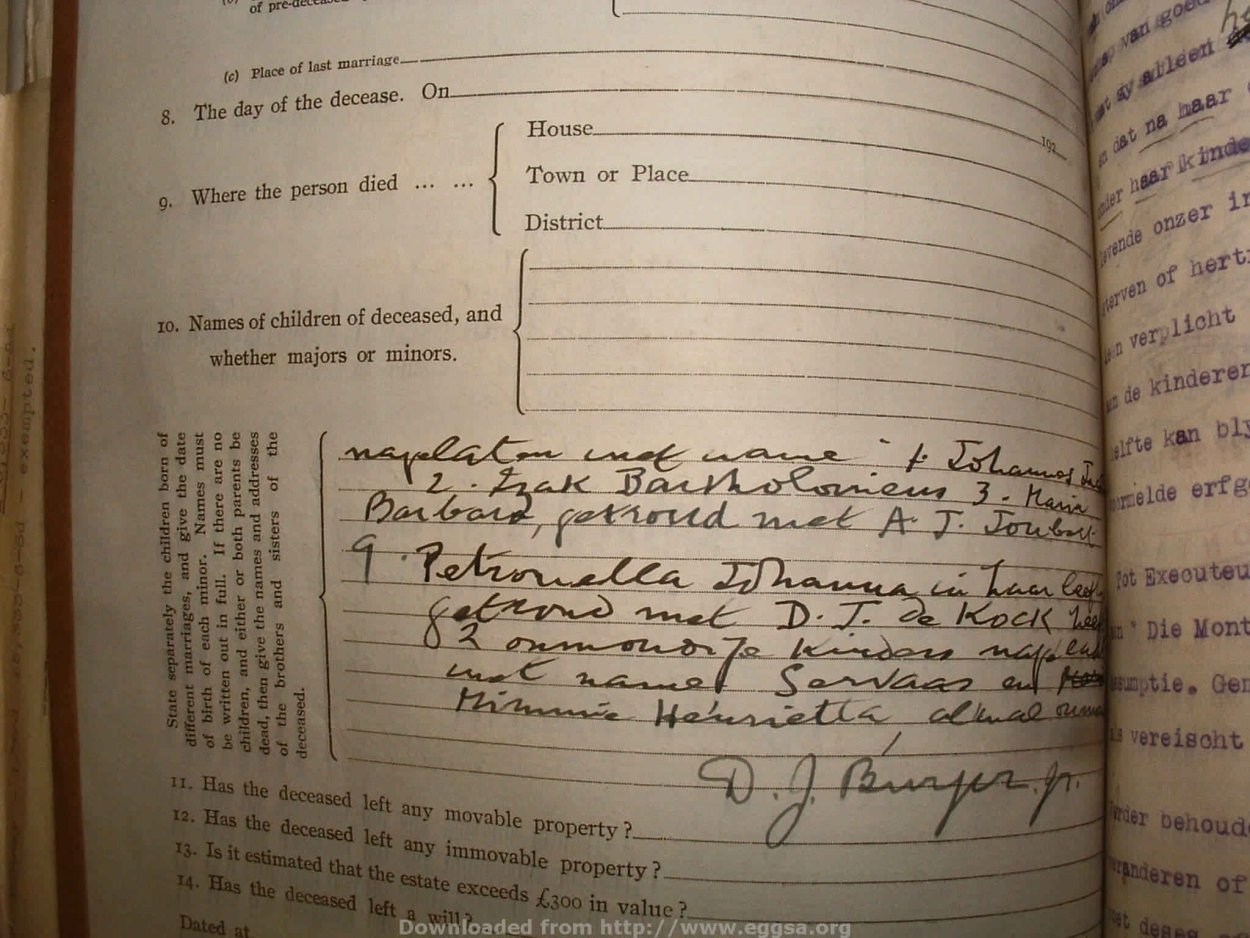 of pre-deceased
(c) Place of last marriage
8. The day of the decease. On
192
9. Where the person died ... ...
House
Town or Place
District
10. Names of children of deceased, and
whether majors or minors.
State separately the children born of
different marriages, and give the date
of birth of each minor. Names must
be written out in full. If there are no
children, and either or both parents be
dead, then give the names and addresses
of the brothers and sisters of the
deceased.
nagelaten met name 1. Johannes
2. Izak Bartholomeus 3. Maria
Barbara, getroud met A. J. Joubert
9. Petronella Johanna in haar
getroud met D. J. de Kock
2 onmondige kinders
met name Servaas en
Mimmie Henrietta almal
D. J. Burger. Jr.
11. Has the deceased left any movable property?
12. Has the deceased left any immovable property?
13. Is it estimated that the estate exceeds £300 in value?
14. Has the deceased left a will?
Dated at
exempted.
van goed
alleen
dat na haar
haar kinde
onzer in
of hert
verplicht
de kinderen
kan bly
erfg
Tot Executeu
Die Mont
Gen
vereischt
behoud
of
Downloaded from http://www.eggsa.org